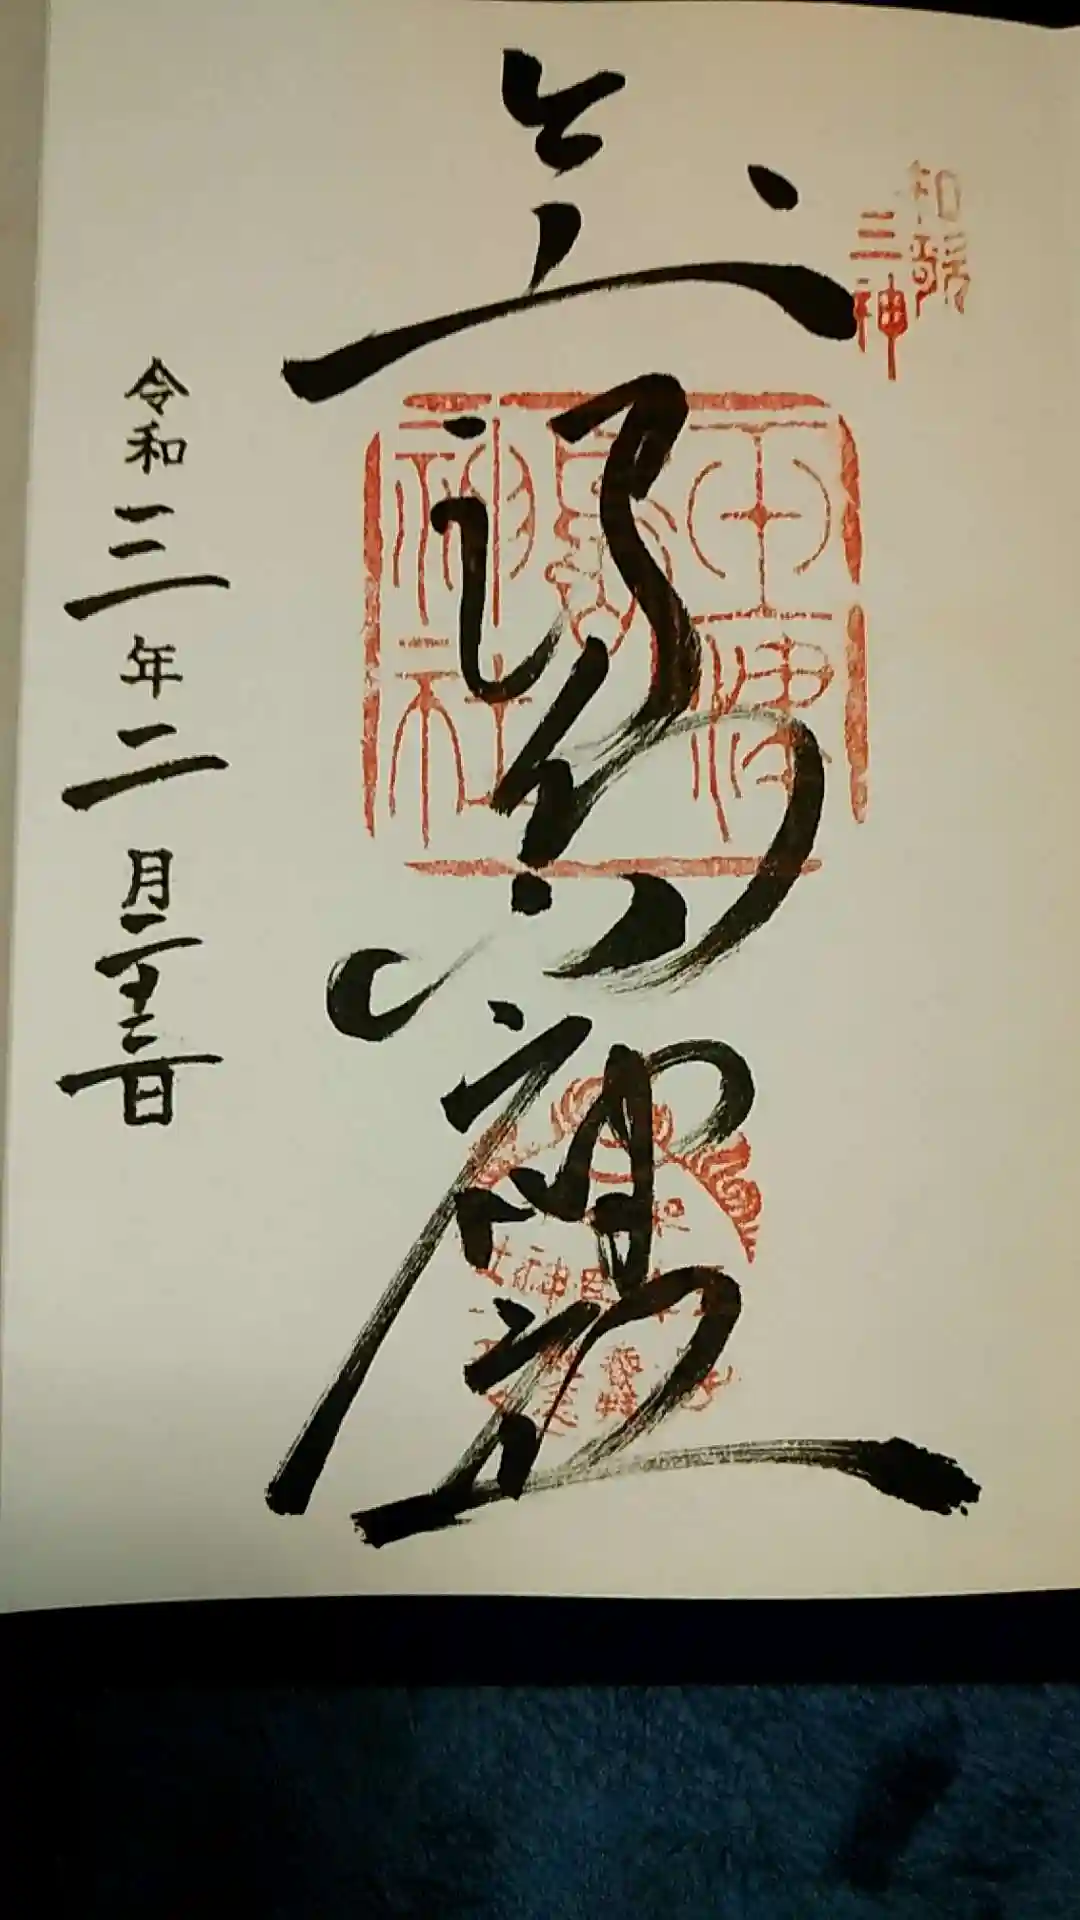 和歌
三神
玉津島神社
玉津
島
神社
令和三年二月二十二日